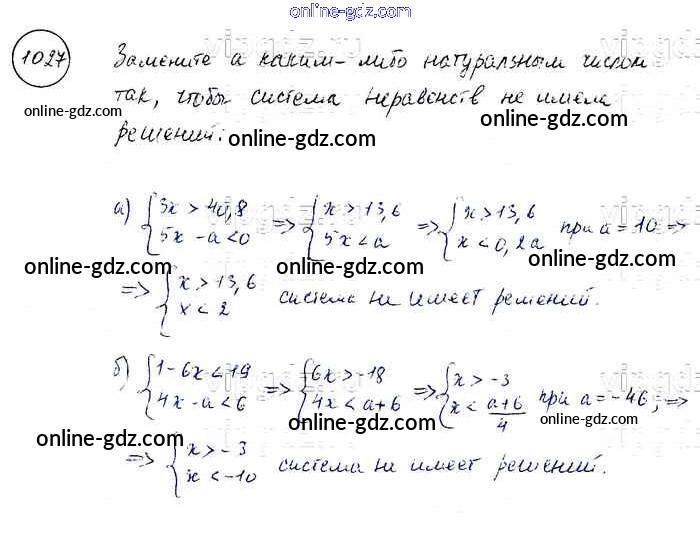 online-gdz.com
1027
Замените а каким-либо натуральным числом
так, чтобы система неравенств не имела
решений:
online-gdz.com
online-gdz.com
online-gdz.com
а) { 3x > 40,8 => { x > 13,6 => { x > 13,6 при a = 10 =>
5x - a < 0 5x < a x < 0,2a
online-gdz.com
online-gdz.com
online-gdz.com
=> { x > 13,6 система не имеет решений.
x < 2
б) { 1 - 6x < 19 => { 6x > -18 => { x > -3 при a = -46; =>
4x - a < 6 4x < a + 6 x < a+6/4
online-gdz.com
online-gdz.com
online-gdz.com
=> { x > -3 система не имеет решений.
x < -10
online-gdz.com